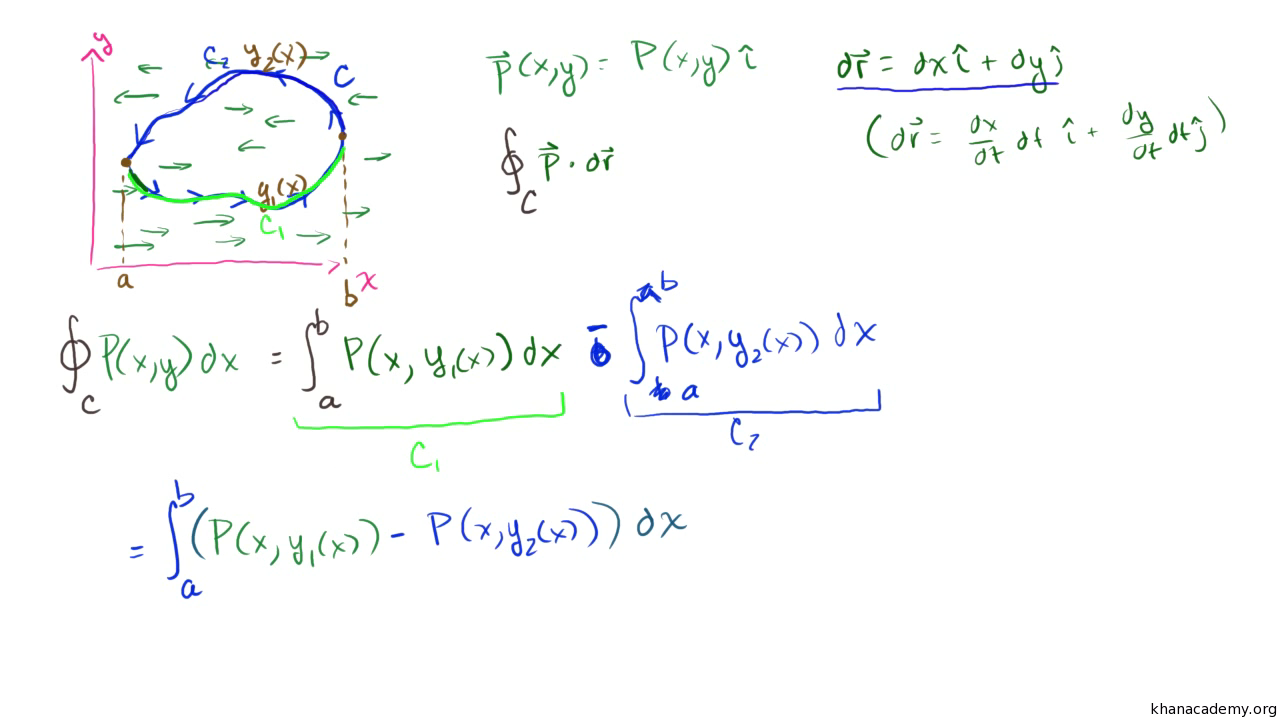 y
C₂ y₂(x)
C
y₁(x)
C₁
a
b
x
p⃗(x,y) = P(x,y) î
dr⃗ = dx î + dy ĵ
(dr⃗ = dx/dt dt î + dy/dt dt ĵ)
∮_C p⃗ · dr⃗
∮_C P(x,y) dx = ∫_a^b P(x, y₁(x)) dx - ∫_a^b P(x, y₂(x)) dx
C₁
C₂
= ∫_a^b (P(x, y₁(x)) - P(x, y₂(x))) dx
khanacademy.org